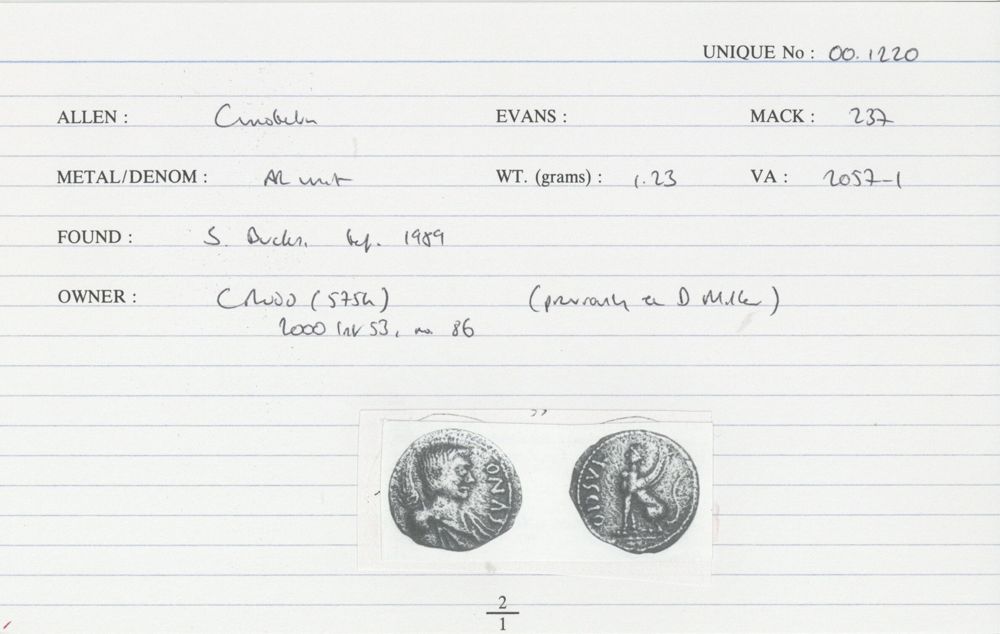 UNIQUE No : 00.1220
ALLEN : Cunobelin EVANS : MACK : 237
METAL/DENOM : AR unit WT. (grams) : 1.23 VA : 2057-1
FOUND : S. Bucks. bef. 1989
OWNER : CRUDD (575h) (previously D Miller)
2000 list 53, no. 86
2
1